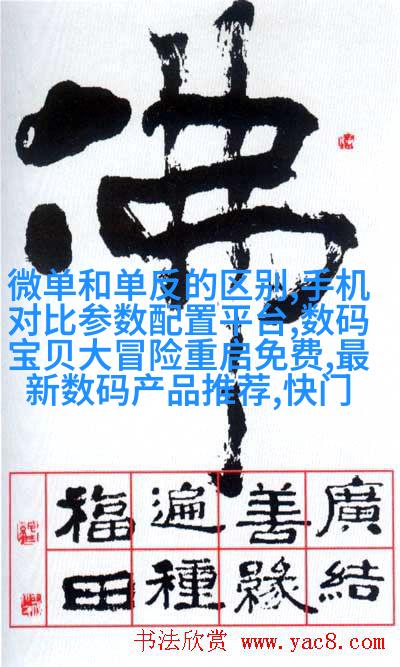 佛
微单和单反的区别,手机
对比参数配置平台,数码
宝贝大冒险重启免费,最
新数码产品推荐,快门
廣結
善緣
遍種
福田
书法欣赏 www.yac8.com